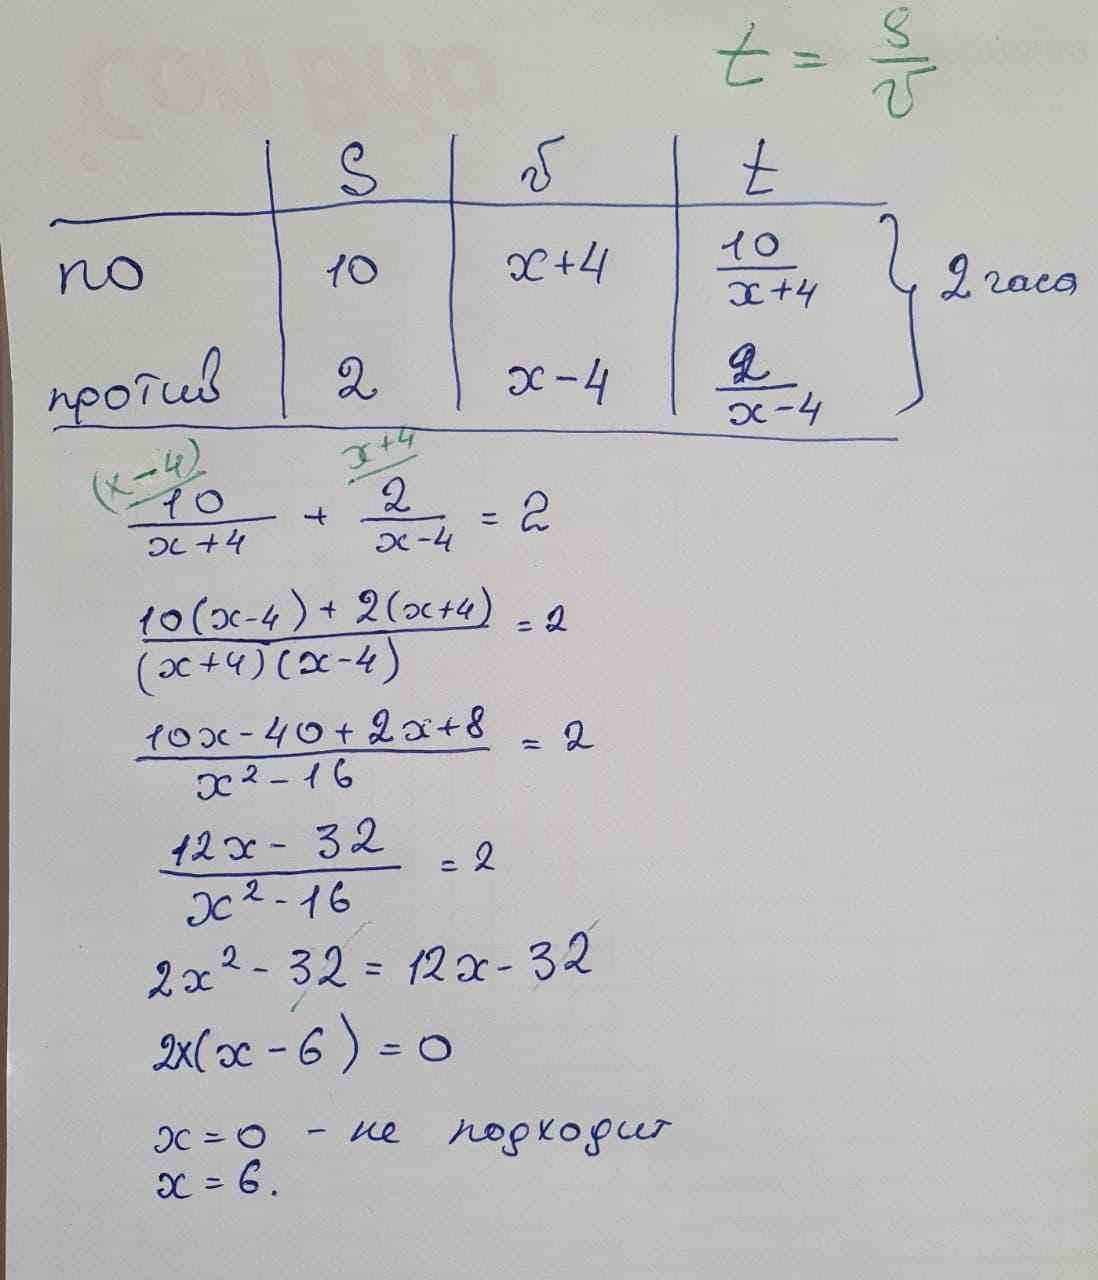 t = s/v
S | v | t
по | 10 | x+4 | 10/(x+4) } 2 часа
против | 2 | x-4 | 2/(x-4)
(x-4) x+4
10/(x+4) + 2/(x-4) = 2
(10(x-4) + 2(x+4))/((x+4)(x-4)) = 2
(10x - 40 + 2x + 8)/(x² - 16) = 2
(12x - 32)/(x² - 16) = 2
2x² - 32 = 12x - 32
2x(x - 6) = 0
x = 0 - не подходит
x = 6.